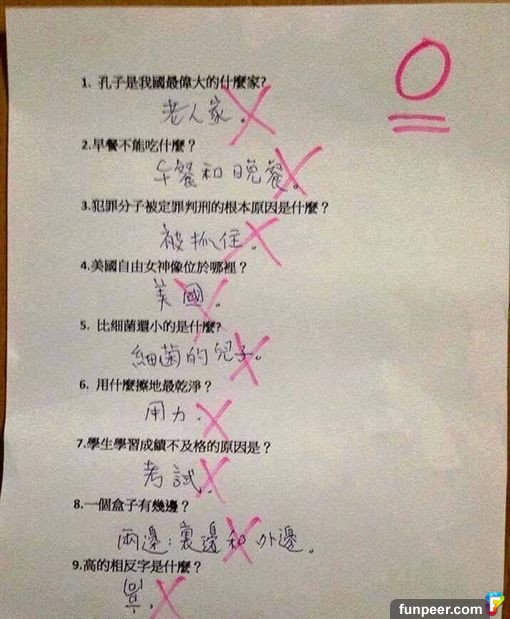 0
1. 孔子是我國最偉大的什麼家?
老人家。
2.早餐不能吃什麼？
午餐和晚餐。
3.犯罪分子被定罪判刑的根本原因是什麼？
被抓住。
4.美國自由女神像位於哪裡？
美國。
5. 比細菌還小的是什麼?
細菌的兒子。
6. 用什麼擦地最乾淨？
用力.
7.學生學習成績不及格的原因是？
考試.
8.一個盒子有幾邊？
兩邊：裏邊和外邊。
9.高的相反字是什麼？
funpeer.com